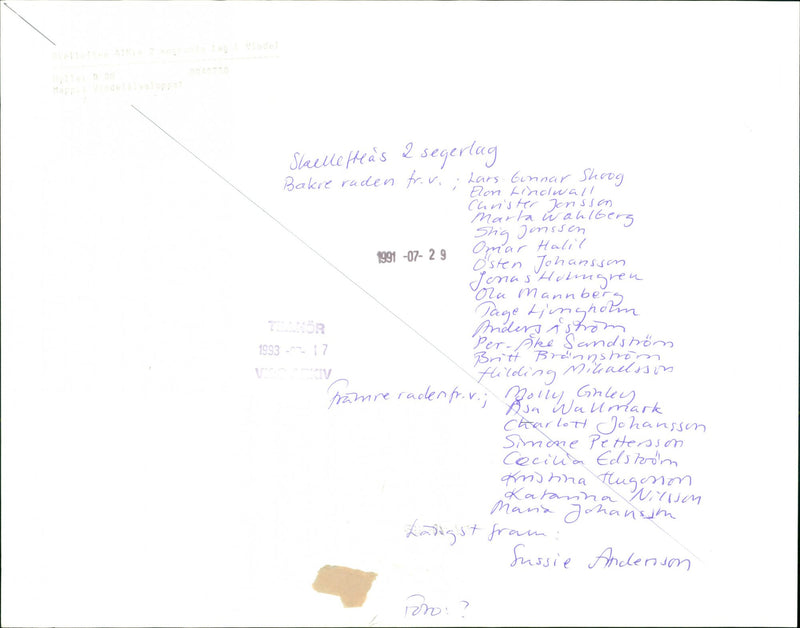 Skellefteås 2 segerlag
Bakre raden fr.v. ; Lars Gunnar Skoog
Elon Lindwall
Christer Jonsson
Marta Wahlberg
Stig Jonsson
Omar Halil
1991 -07- 29
Östen Johansson
Jonas Holmgren
Ola Mannberg
Tage Ljungholm
Anders Åström
Per-Åke Sandström
Britt Brännström
Hilding Mikaelsson
1993 17
Främre raden fr.v.; Molly Ginley
Åsa Wallmark
Charlott Johansson
Simone Pettersson
Cecilia Edström
Kristina Hugosson
Katarina Nilsson
Maria Johansson
Längst fram:
Sussie Andersson
Foto: ?